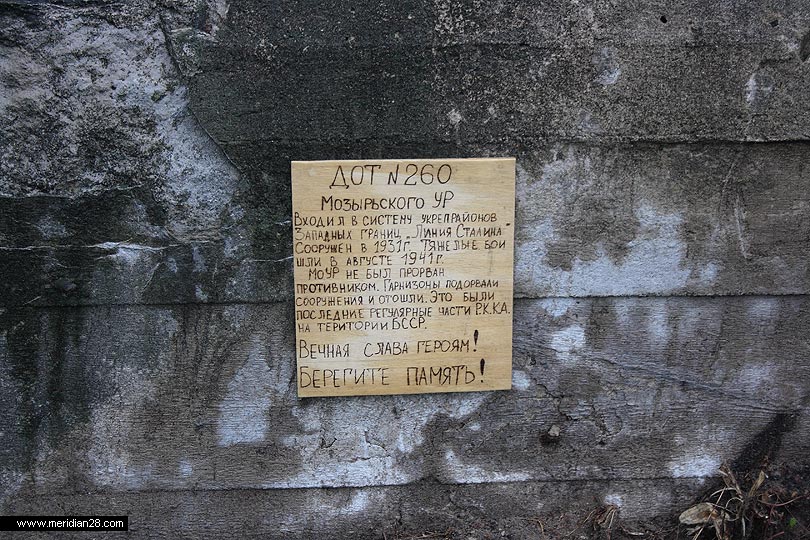 ДОТ N260
МОЗЫРЬСКОГО УР
ВХОДИЛ В СИСТЕМУ УКРЕПРАЙОНОВ
ЗАПАДНЫХ ГРАНИЦ - ЛИНИЯ СТАЛИНА
СООРУЖЕН В 1931г. ТЯЖЕЛЫЕ БОИ
ШЛИ В АВГУСТЕ 1941г.
МОУР НЕ БЫЛ ПРОРВАН
ПРОТИВНИКОМ. ГАРНИЗОНЫ ПОДОРВАЛИ
СООРУЖЕНИЯ И ОТОШЛИ. ЭТО БЫЛИ
ПОСЛЕДНИЕ РЕГУЛЯРНЫЕ ЧАСТИ Р.К.К.А.
НА ТЕРИТОРИИ БССР.
ВЕЧНАЯ СЛАВА ГЕРОЯМ!
БЕРЕГИТЕ ПАМЯТЬ!
www.meridian28.com